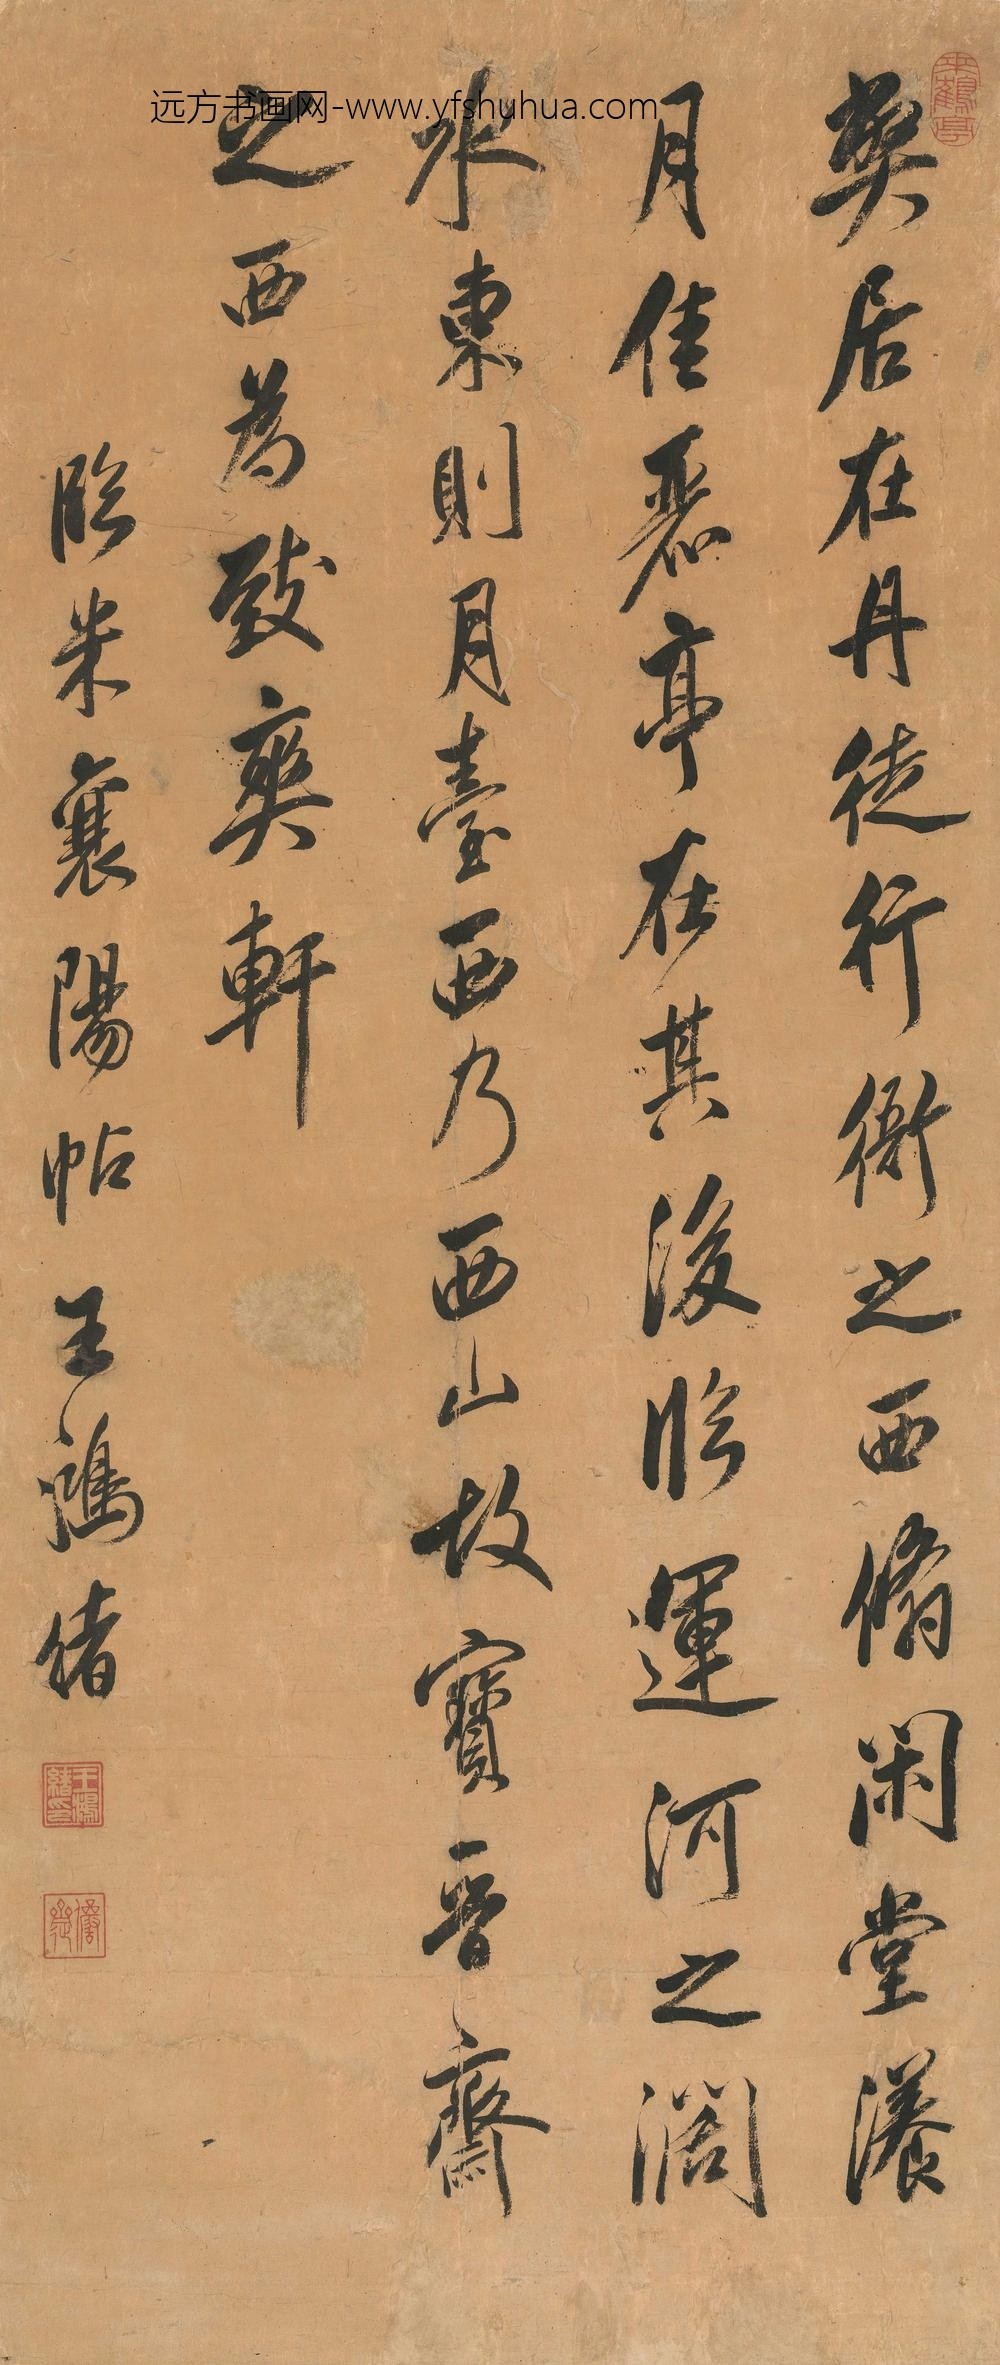 远方书画网-www.yfshuhua.com
來鶴亭
弊居在丹徒行衙之西脩闲堂漾
月佳麗亭在其後臨運河之闊
水東則月臺西乃西山故寶晉齋
之西為致爽軒
臨米襄陽帖 王鴻緒
王鴻緒印
儼齋